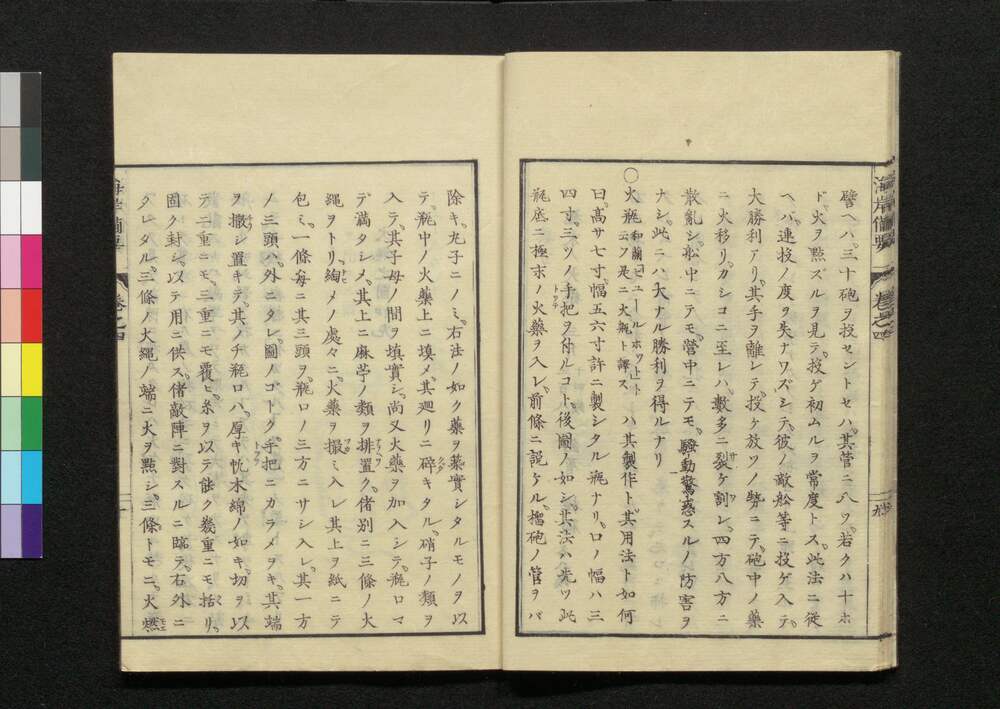 譬ヘハ、三十砲ヲ投セントセハ、其管ニ八ツ、若クハ十ホ
ド、火ヲ點ズルヲ見テ、投ゲ初ムルヲ常度トス、此法ニ従
ヘバ、連投ノ度ヲ失ナワズシテ、彼ノ敵舩等ニ投ゲ入テ、
大勝利アリ、其手ヲ離レテ、投ゲ放ツノ勢ニテ、砲中ノ藥
ニ火移リ、カシコニ至レハ、數多ニ裂ケ割レ、四方八方ニ
散亂シ、舩中ニテモ、營中ニテモ、騷動驚惑スルノ防害ヲ
ナシ、此ニハ、大ナル勝利ヲ得ルナリ
〇火瓶 和蘭ヒユールホツ上ト云フ是ニ火瓶ト譯ス ハ其製作ト、其用法ト如何
曰、高サ七寸、幅五六寸許ニ製シタル瓶ナリ、口ノ幅ハ三
四寸、三ツノ手把ヲ付ルコト、後圖ノ如シ、其法ハ先ツ此
瓶底ニ極末ノ火藥ヲ入レ、前條ニ説ケル、榴砲ノ管ヲバ
海岸備要 卷之四
除キ、丸子ニノミ、右法ノ如ク藥ヲ藥實シタルモノヲ以
テ、瓶中ノ火藥上ニ填メ、其廻リニ碎キタル、硝子ノ類ヲ
入テ、其子母ノ間ヲ填實シ、尚又火藥ヲ加入シテ、瓶口マ
デ滿タシメ、其上ニ麻苧ノ類ヲ排置ク、偖別ニ三條ノ火
繩ヲトリ、綯メノ處々ニ、火藥ヲ撮ミ入レ其上ヲ紙ニテ
包ミ、一條每ニ其三頭ヲ、瓶口ノ三方ニサシ入レ、其一方
ノ三頭ハ、外ニタレ、圖ノゴトク、手把ニカラメヲキ、其端
ヲ撒シ置キテ、其ノチ瓶口ハ、厚キ忱木綿ノ如キ、切ヲ以
テ、二重ニモ、三重ニモ覆ヒ、糸ヲ以テ能ク幾重ニモ括リ、
固ク封シ、以テ用ニ供ス、偖敵陣ニ對スルニ臨テ、右外ニ
タレタル、三條ノ大繩ノ端ニ火ヲ點シ、三條トモニ、火燃
卷之四